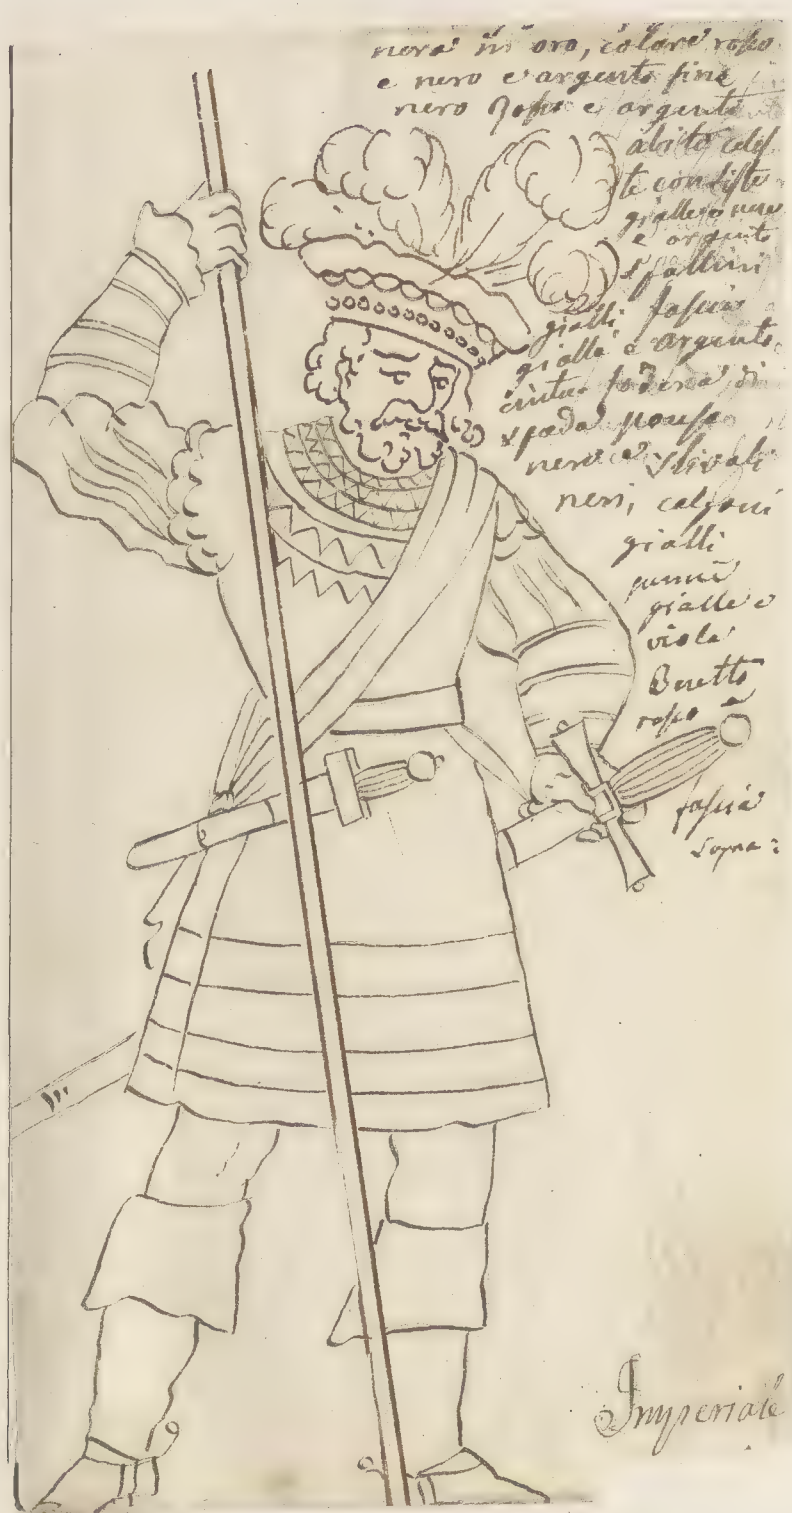 nera in oro, colore rosso
e nero e argento fine
nero rosso e argento
abito celes
te con liste
gialle e nere
e argento
spallini
gialli, fascia
gialla e argento,
cintura fodera di
spada
nero e stivali
neri, calzoni
gialli
penne
gialle e
viola
Beretto
rosso e
fascia
sopra:
Imperiale